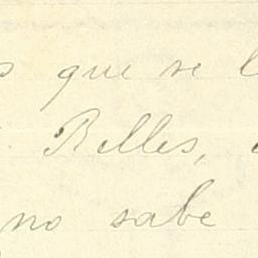 que se
Belles,
no sabe